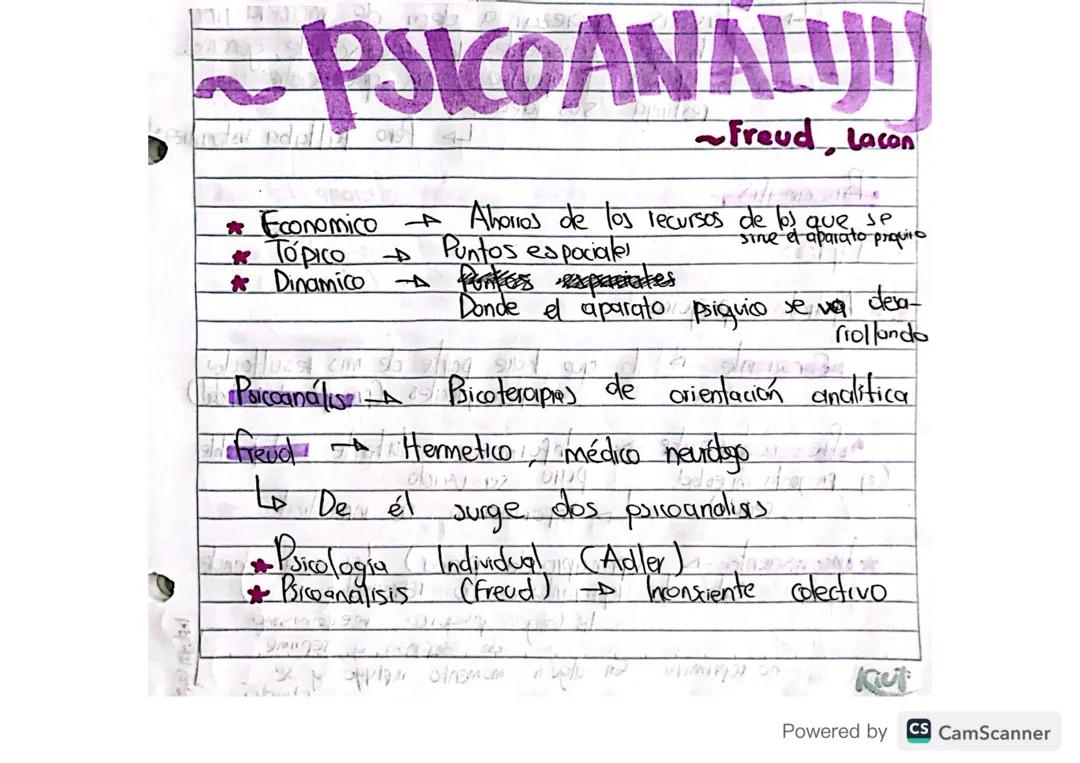 ~ PSICOANÁLISIS
~Freud, Lacan
★ Economico → Ahorros de los recursos de los que se
sirve el aparato psiquico
★ Tópico → Puntos espaciales
★ Dinamico →
Donde el aparato psiquico se va desa-
rrollando
Psicoanálisis → Psicoterapias de orientación analítica
Freud → Hermetico, médico neurólogo
↳ De él surge dos psicoanalisis
★ Psicología Individual (Adler)
★ Psicoanálisis (Freud) → Inconsciente colectivo
Powered by CS CamScanner